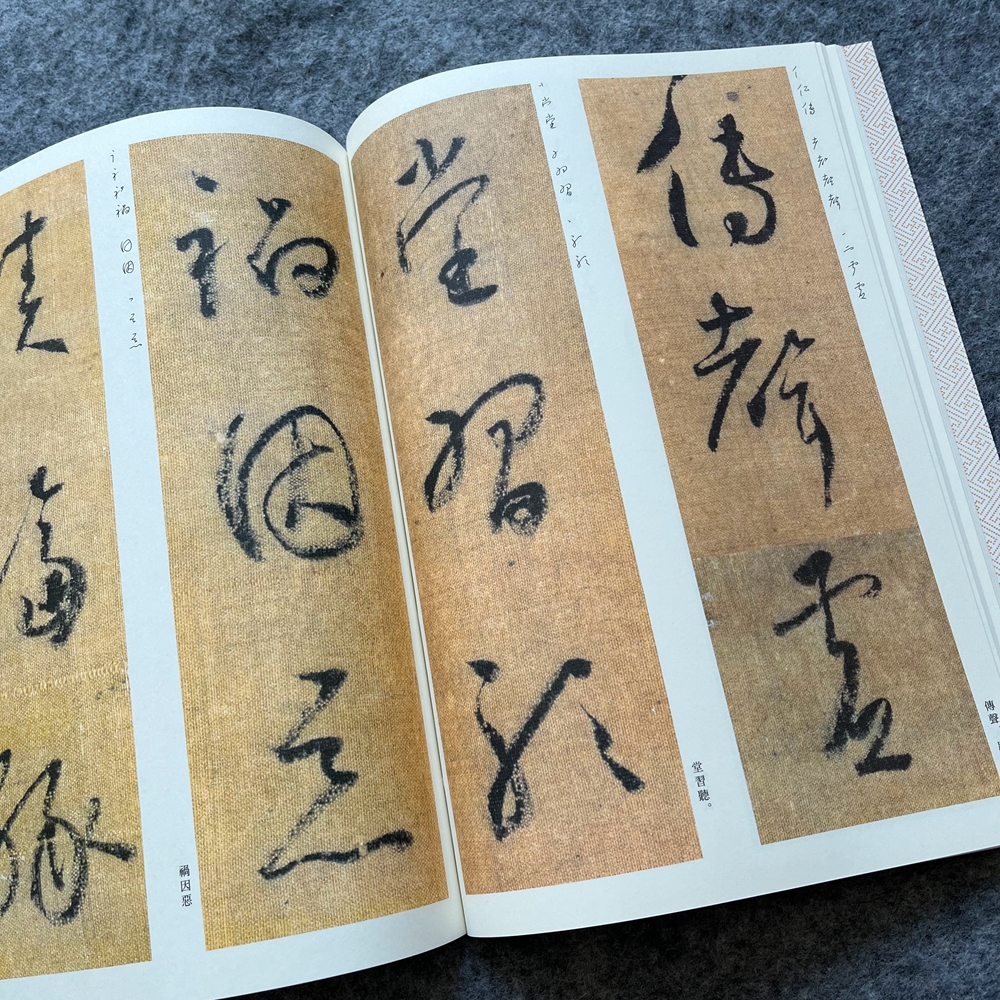 傳聲虛
傳聲
堂習聽
堂習聽。
禍因惡
禍因惡
積福緣